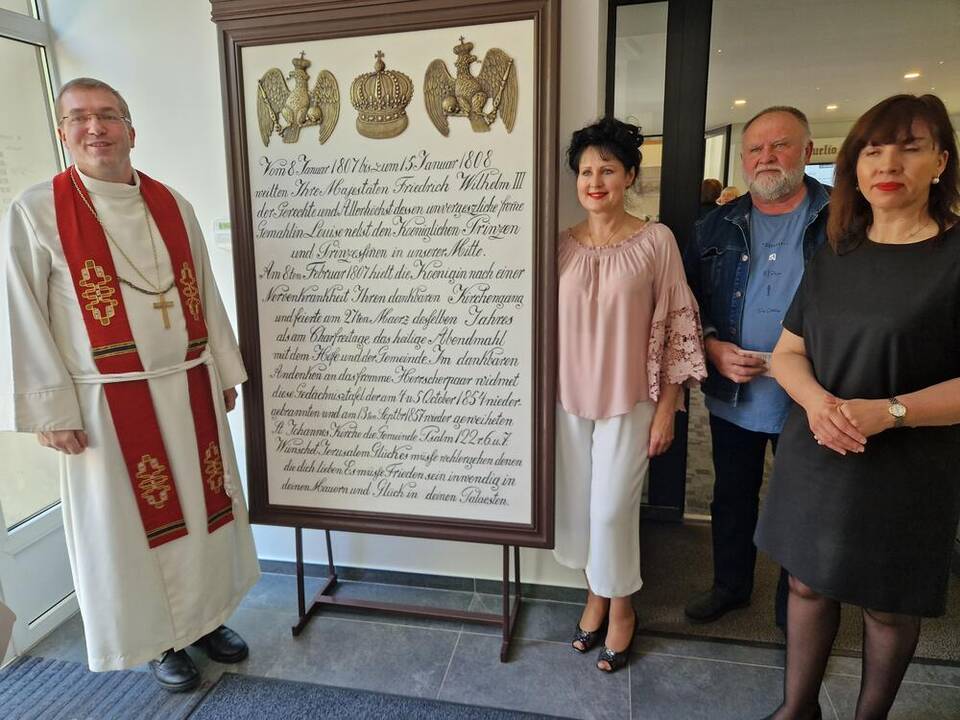 Vom 8. Januar 1807 bis zum 15. Januar 1808
weilten Ihre Majestäten Friedrich Wilhelm III
der Gerechte und Allerhöchst dessen unvergeszliche fromme
Gemahlin Louise nebst den Koeniglichen Prinzen
und Prinzessinen in unserer Mitte.
Am 8ten Februar 1807 hielt die Koenigin nach einer
Nervenkrankheit Ihren dankbaren Kirchengang
und feierte am 27ten Maerz desselben Jahres
als am Charfreitage das heilige Abendmahl
mit dem Hofe und der Gemeinde. Im dankbaren
Andenken an das fromme Herrscherpaar widmet
diese Gedächtnisztafel der am 4 u 5 October 1854 nieder-
gebrannten und am 13ten Septbr 1857 wieder geweiheten
St. Johannes Kirche die Gemeinde Psalm 122 v. 6. u. 7.
Wünschet Jerusalem Glück es müsse wohlergehen denen
die dich lieben. Es müsse Frieden sein inwendig in
deinen Mauern und Glück in deinen Palaesten.